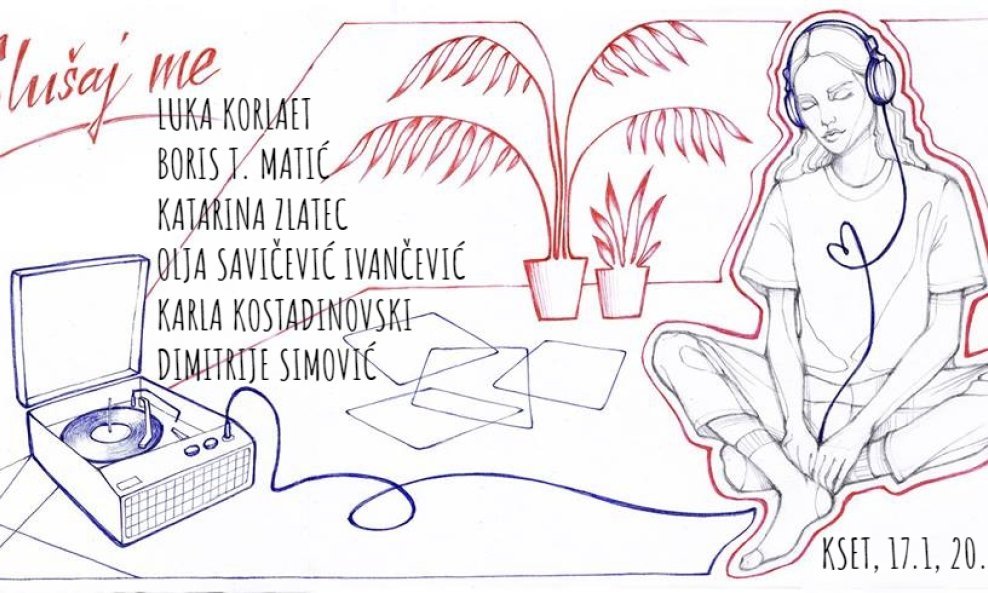 Slušaj me
LUKA KORLAET
BORIS T. MATIĆ
KATARINA ZLATEC
OLJA SAVIČEVIĆ IVANČEVIĆ
KARLA KOSTADINOVSKI
DIMITRIJE SIMOVIĆ
KSET, 17.1, 20.